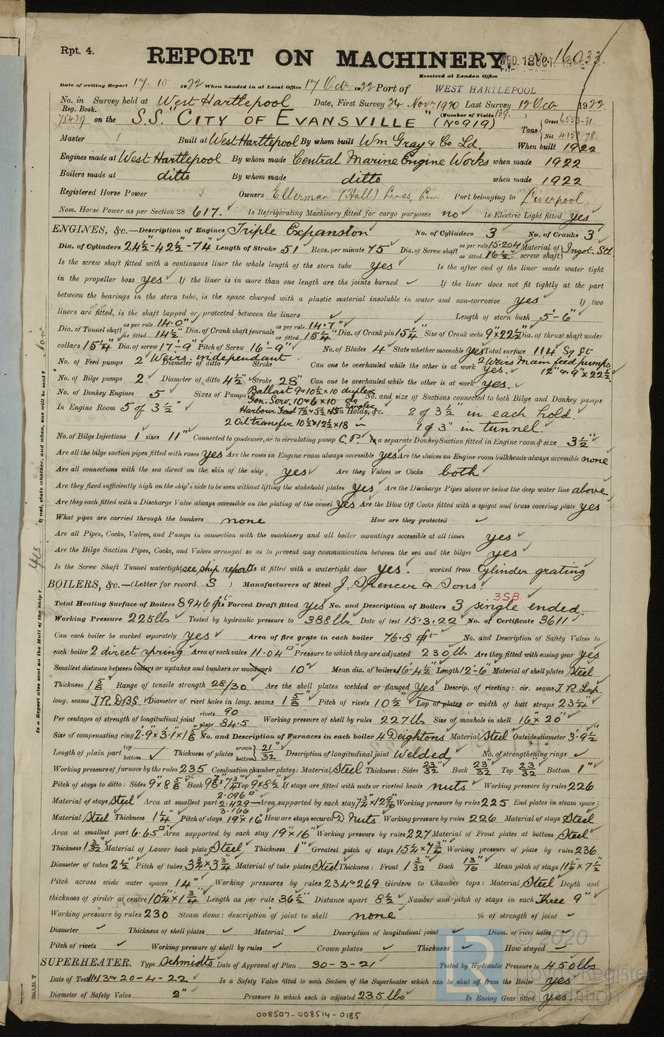 Rpt. 4.
REPORT ON MACHINERY
No. 16033
Received at London Office
Date of writing Report 17. 10 1922 When handed in at Local Office 17 Oct. 1922 Port of WEST HARTLEPOOL
No. in Survey held at West Hartlepool Date, First Survey 24 Nov 1920 Last Survey 12 Oct 1922
Reg. Book.
on the S.S. "CITY OF EVANSVILLE" (No 919) (Number of Visits 139.)
Tons Gross 6553.31 Net
Master Built at West Hartlepool By whom built Wm Gray & Co Ld. When built 1922
Engines made at West Hartlepool By whom made Central Marine Engine Works when made 1922
Boilers made at ditto By whom made ditto when made 1922
Registered Horse Power Owners Ellerman (Hall) Lines, Lim Port belonging to Liverpool
Nom. Horse Power as per Section 28 617. Is Refrigerating Machinery fitted for cargo purposes no Is Electric Light fitted yes
ENGINES, &c.—Description of Engines Triple Expansion No. of Cylinders 3 No. of Cranks 3
Dia. of Cylinders 24½-42½-74 Length of Stroke 51 Revs. per minute 75 Dia. of Screw shaft as per rule 15.204 as fitted 16½ Material of screw shaft Ingot Stl
Is the screw shaft fitted with a continuous liner the whole length of the stern tube yes Is the after end of the liner made water tight
in the propeller boss yes If the liner is in more than one length are the joints burned If the liner does not fit tightly at the part
between the bearings in the stern tube, is the space charged with a plastic material insoluble in water and non-corrosive yes If two
liners are fitted, is the shaft lapped or protected between the liners Length of stern bush 5'-6"
Dia. of Tunnel shaft as per rule 14.0" as fitted 14½" Dia. of Crank shaft journals as per rule 14.7" as fitted 15¼" Dia. of Crank pin 15¼" Size of Crank webs 9"x22½" Dia. of thrust shaft under
collars 15¼" Dia. of screw 17'-9" Pitch of Screw 16'-9" No. of Blades 4 State whether moveable yes Total surface 114 Sq ft
No. of Feed pumps 2 Weirs independant Diameter of ditto Stroke Can one be overhauled while the other is at work yes. 2 Weirs Main feed pumps 12" x 9" x 22½"
No. of Bilge pumps 2 Diameter of ditto 4½" Stroke 28" Can one be overhauled while the other is at work yes.
No. of Donkey Engines 5 Sizes of Pumps Ballast 9x10½x10 duplex No. and size of Suctions connected to both Bilge and Donkey pumps
Gen. Serv. 10x6x10 do
In Engine Room 5 of 3½" Harbour Feed In Holds, &c. 2 of 3½" in each hold
2 Oil transfer 1 of 3" in tunnel.
No. of Bilge Injections 1 sizes 11" Connected to condenser, or to circulating pump C.P. Is a separate Donkey Suction fitted in Engine room & size 3½"
Are all the bilge suction pipes fitted with roses yes Are the roses in Engine room always accessible yes Are the sluices on Engine room bulkheads always accessible none
Are all connections with the sea direct on the skin of the ship yes Are they Valves or Cocks both
Are they fixed sufficiently high on the ship's side to be seen without lifting the stokehold plates yes Are the Discharge Pipes above or below the deep water line above
Are they each fitted with a Discharge Valve always accessible on the plating of the vessel yes Are the Blow Off Cocks fitted with a spigot and brass covering plate yes
What pipes are carried through the bunkers none How are they protected
Are all Pipes, Cocks, Valves, and Pumps in connection with the machinery and all boiler mountings accessible at all times yes
Are the Bilge Suction Pipes, Cocks, and Valves arranged so as to prevent any communication between the sea and the bilges yes
Is the Screw Shaft Tunnel watertight see ship report Is it fitted with a watertight door yes. worked from Cylinder grating
BOILERS, &c.—(Letter for record S) Manufacturers of Steel J. Spencer & Sons.
3 SB
Total Heating Surface of Boilers 8946 ft Is Forced Draft fitted yes No. and Description of Boilers 3 single ended.
Working Pressure 225 lbs Tested by hydraulic pressure to 388 lbs Date of test 15.3.22 No. of Certificate 3611
Can each boiler be worked separately yes Area of fire grate in each boiler 76.5 ft No. and Description of Safety Valves to
each boiler 2 direct spring Area of each valve 11.04 Pressure to which they are adjusted 230 lb Are they fitted with easing gear yes
Smallest distance between boilers or uptakes and bunkers or woodwork 10" Mean dia. of boilers 16'-4½" Length 12'-6" Material of shell plates Steel
Thickness Range of tensile strength 28/30 Are the shell plates welded or flanged Yes Descrip. of riveting: cir. seams T.R. Lap
long. seams T.R. DBS. Diameter of rivet holes in long. seams 1⅝ Pitch of rivets 10½" Lap of plates or width of butt straps 23½"
Per centages of strength of longitudinal joint rivets 90 plate 84.5 Working pressure of shell by rules 227 lb Size of manhole in shell 16" x 20"
Size of compensating ring No. and Description of Furnaces in each boiler 4 Deightons Material Steel Outside diameter 3'-9½"
Length of plain part top bottom Thickness of plates crown bottom 21/32 Description of longitudinal joint Welded No. of strengthening rings
Working pressure of furnace by the rules 235 Combustion chamber plates: Material Steel Thickness: Sides 23/32 Back 23/32 Top 23/32 Bottom 1"
Pitch of stays to ditto: Sides Back Top If stays are fitted with nuts or riveted heads nuts Working pressure by rules 226
Material of stays Steel Area at smallest part Area supported by each stay Working pressure by rules 225 End plates in steam space
Material Steel Thickness 1¼ Pitch of stays 19"x16" How are stays secured D Nuts Working pressure by rules 226 Material of stays Steel
Area at smallest part 6.65 Area supported by each stay 19"x16" Working pressure by rules 227 Material of Front plates at bottom Steel
Thickness Material of Lower back plate Steel Thickness 1" Greatest pitch of stays Working pressure of plate by rules 236
Diameter of tubes 2½" Pitch of tubes 3¾"x3¾" Material of tube plates Steel Thickness: Front 1 3/32 Back 13/16 Mean pitch of stays
Pitch across wide water spaces 14" Working pressures by rules 234 & 269 Girders to Chamber tops: Material Steel Depth and
thickness of girder at centre Length as per rule 36½" Distance apart 8½" Number and pitch of stays in each Three 9"
Working pressure by rules 230 Steam dome: description of joint to shell none % of strength of joint
Diameter Thickness of shell plates Material Description of longitudinal joint Diam. of rivet holes
Pitch of rivets Working pressure of shell by rules Crown plates Thickness How stayed
SUPERHEATER. Type Schmidts Date of Approval of Plan 30-3-21 Tested by Hydraulic Pressure to 450 lbs
Date of Test 20-4-22 Is a Safety Valve fitted to each Section of the Superheater which can be shut off from the Boiler yes
Diameter of Safety Valve 2" Pressure to which each is adjusted 235 lbs Is Easing Gear fitted yes
008507-008514-0185
© 2020
Lloyd's Register
Foundation